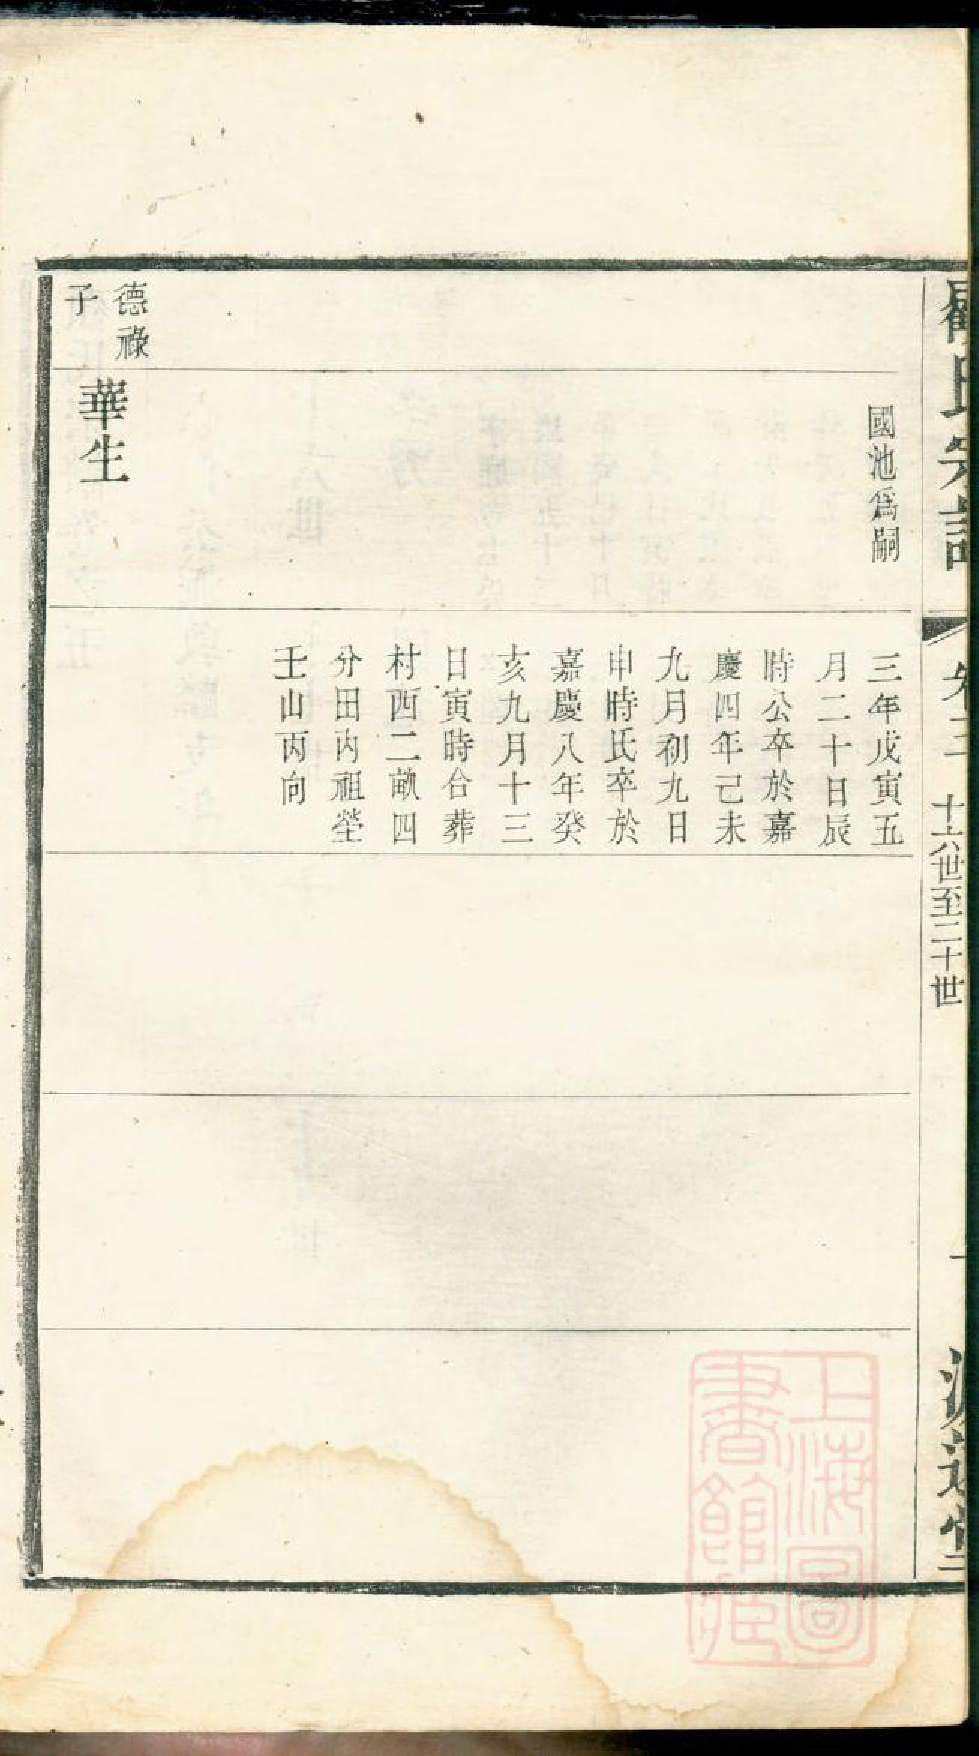 顧氏宗譜
卷三
十六世至二十世
一
源遠堂
國池爲嗣
三年戊寅五
月二十日辰
時公卒於嘉
慶四年己未
九月初九日
申時氏卒於
嘉慶八年癸
亥九月十三
日寅時合葬
村西二畝四
分田內祖塋
壬山丙向
德祿
子
華生
上海圖
書館藏